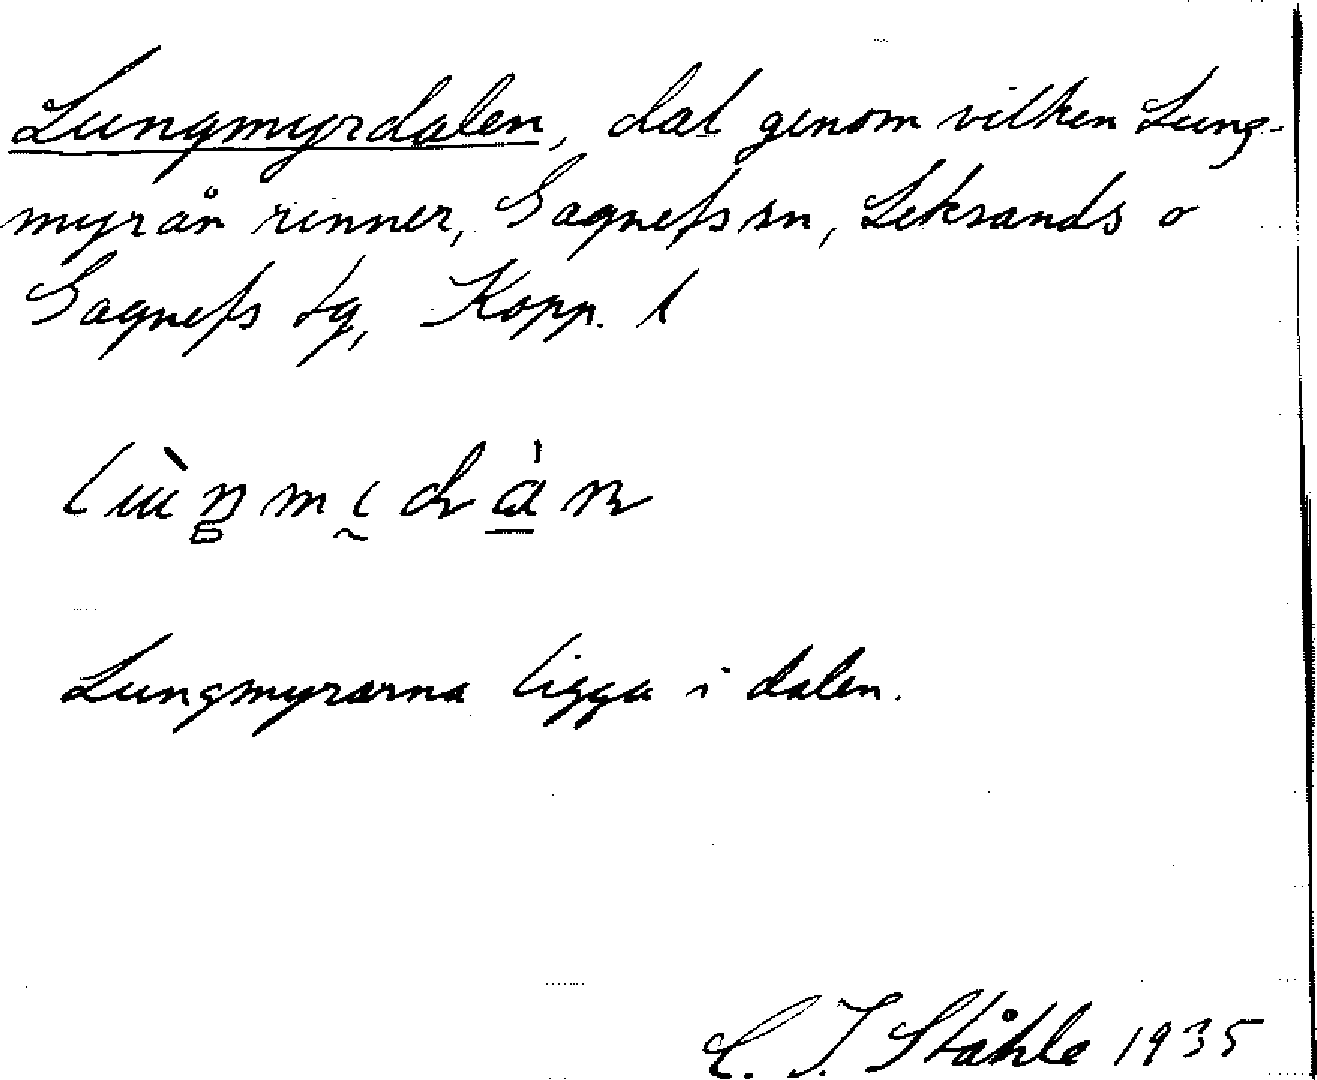 Lungmyrdalen, dal genom vilken Lung-
myrån rinner, Gagnefs sn, Leksands o
Gagnefs tg, Kopp. l
Lungmyrarna ligga i dalen.
C. I. Ståhle 1935